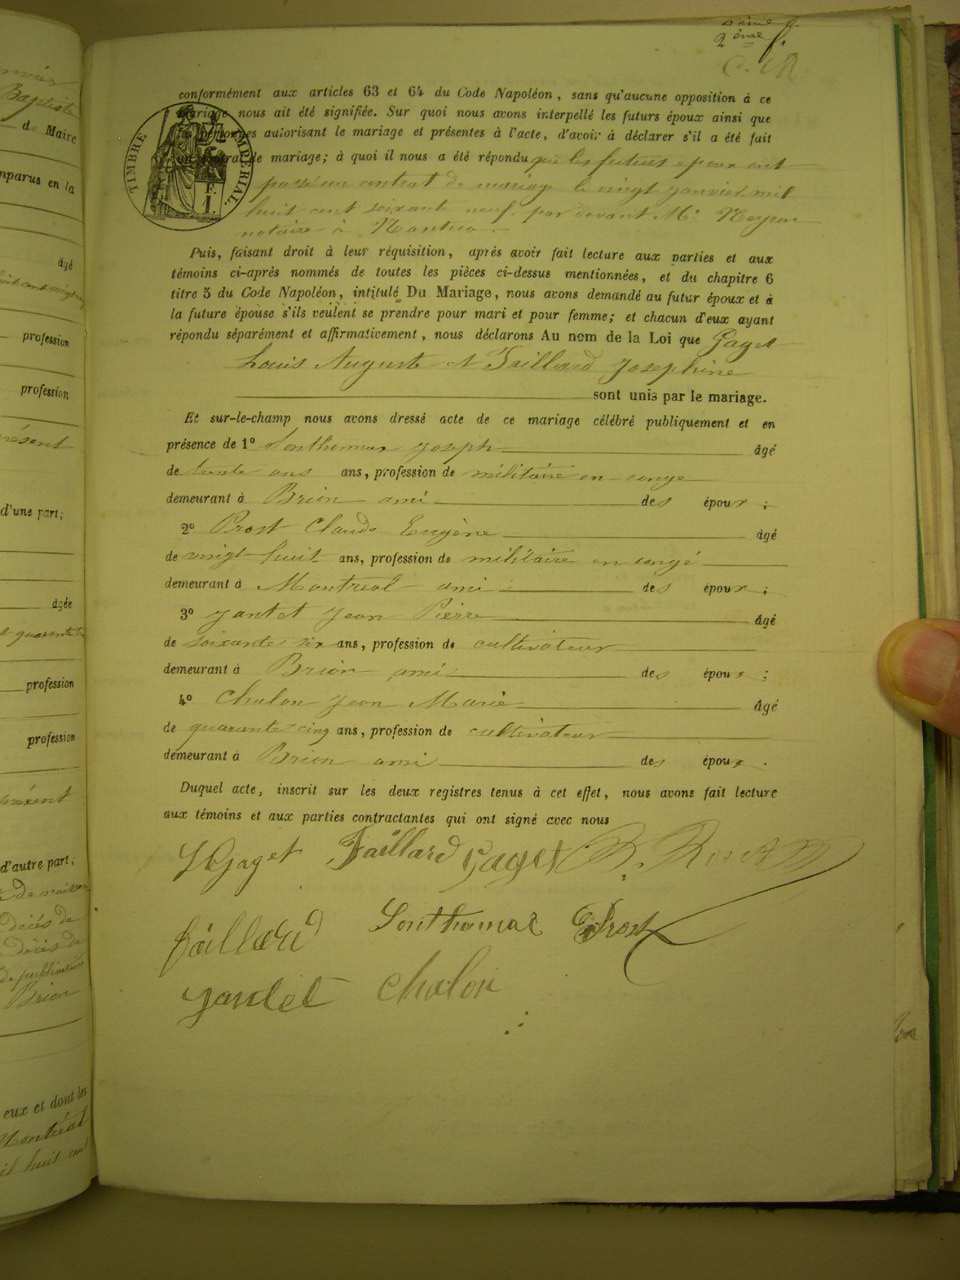 2 ème f.
conformément aux articles 63 et 64 du Code Napoléon, sans qu'aucune opposition à ce
mariage nous ait été signifiée. Sur quoi nous avons interpellé les futurs époux ainsi que
les personnes autorisant le mariage et présentes à l'acte, d'avoir à déclarer s'il a été fait
un contrat de mariage; à quoi il nous a été répondu que les futurs epoux ont
passé un contrat de mariage le vingt janvier mil
huit cent soixant neuf par devant Me
notaire à Nantua
TIMBRE IMPÉRIAL
1 F.
Puis, faisant droit à leur réquisition, après avoir fait lecture aux parties et aux
témoins ci-après nommés de toutes les pièces ci-dessus mentionnées, et du chapitre 6
titre 5 du Code Napoléon, intitulé Du Mariage, nous avons demandé au futur époux et à
la future épouse s'ils veulent se prendre pour mari et pour femme; et chacun d'eux ayant
répondu séparément et affirmativement, nous déclarons Au nom de la Loi que Gaget
Louis Auguste et Taillard Josephine
sont unis par le mariage.
Et sur-le-champ nous avons dressé acte de ce mariage célébré publiquement et en
présence de 1º Sonthonnax Joseph âgé
de trente ans ans, profession de militaire en conge
demeurant à Brion ami des époux;
2º Prost Claude Eugène âgé
de vingt huit ans, profession de militaire en congé
demeurant à Montreal ami des époux;
3º Jantet Jean Pierre âgé
de soixante six ans, profession de cultivateur
demeurant à Brion ami des époux;
4º Chalon Jean Marie âgé
de quarante cinq ans, profession de cultivateur
demeurant à Brion ami des époux.
Duquel acte, inscrit sur les deux registres tenus à cet effet, nous avons fait lecture
aux témoins et aux parties contractantes qui ont signé avec nous
Gaget Taillard Gaget
Taillard Sonthonnax Prost
Jantet Chalon
Baptiste
de Maire
mparus en la
âgé
profession
profession
présent
d'une part;
âgée
profession
profession
présent
d'autre part;
décès de
décès de
Brion
eux et dont les
Montréal